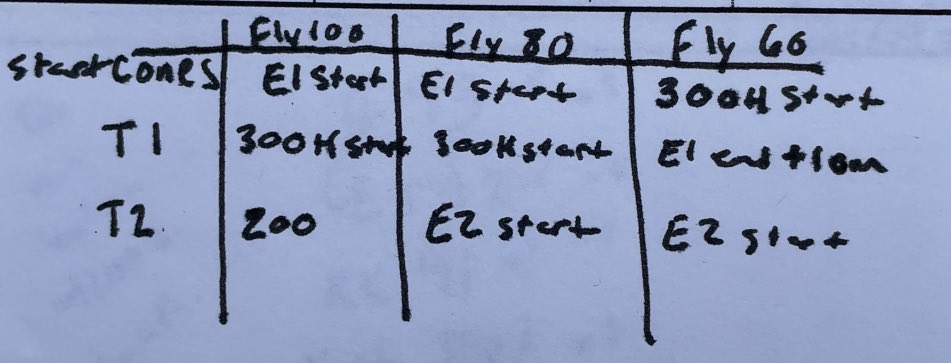 Fly 100 Fly 80 Fly 60
Start Cones E1 Start E1 Start 300H Start
T1 300H Start 300H start E1 end + 10m
T2 200 E2 start E2 start